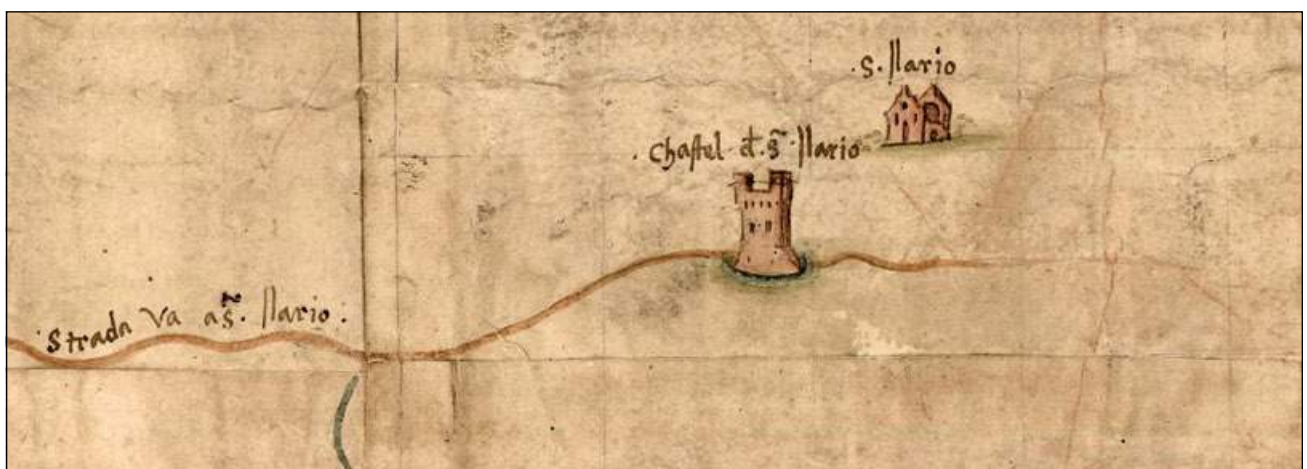 .S. Ilario
. Chastel d. s̃. Ilario
Strada va a s̃. Ilario.